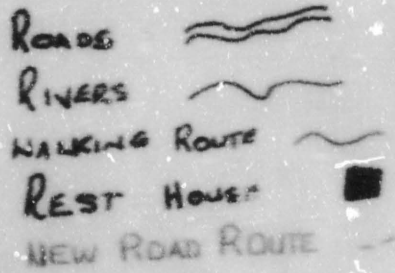 ROADS
RIVERS
WALKING ROUTE
REST HOUSE
NEW ROAD ROUTE